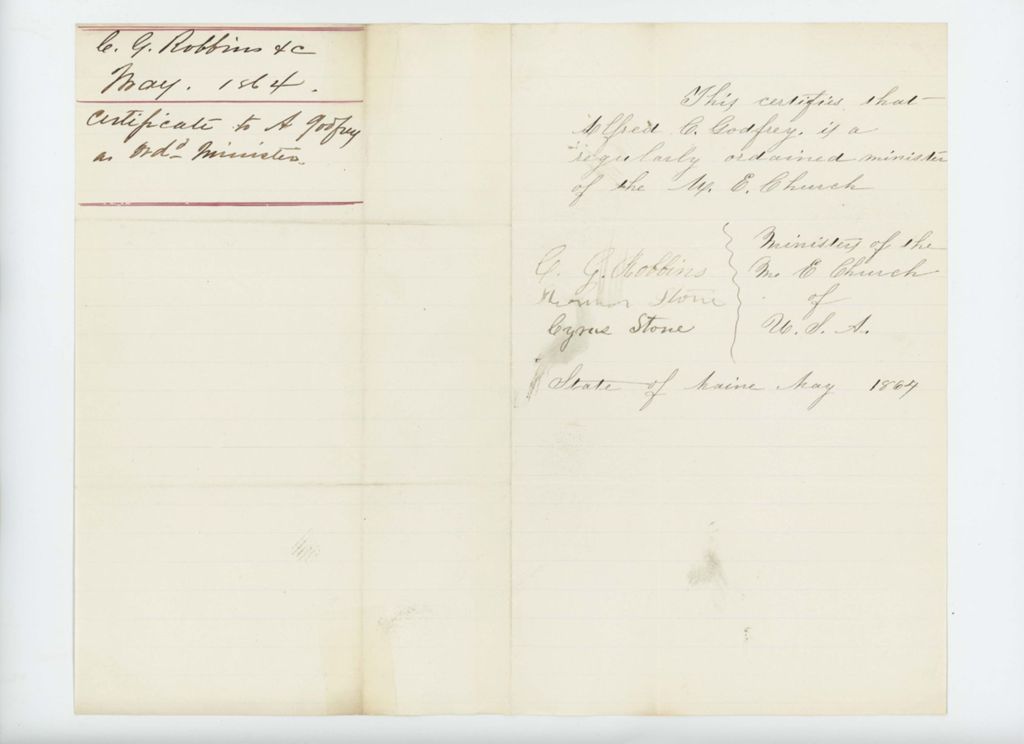 C. G. Robbins &c
May. 1864.
Certificate to A Godfrey
as Ord^d Minister.
This certifies that
Alfred C. Godfrey. is a
regularly ordained minister
of the M. E. Church
C. G. Robbins
Stone
Cyrus Stone
Ministers of the
M. E Church
of
U. S. A.
State of Maine May 1864